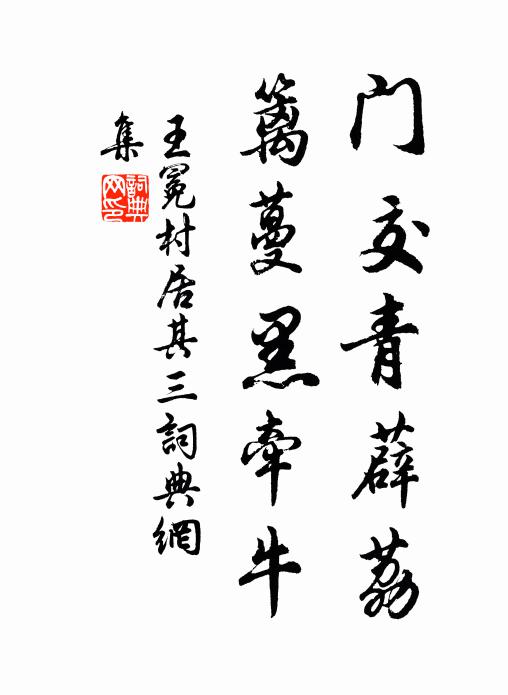 门交青薜荔
篱蔓黑牵牛
王冕村居其三詞典網
集
詞典网印